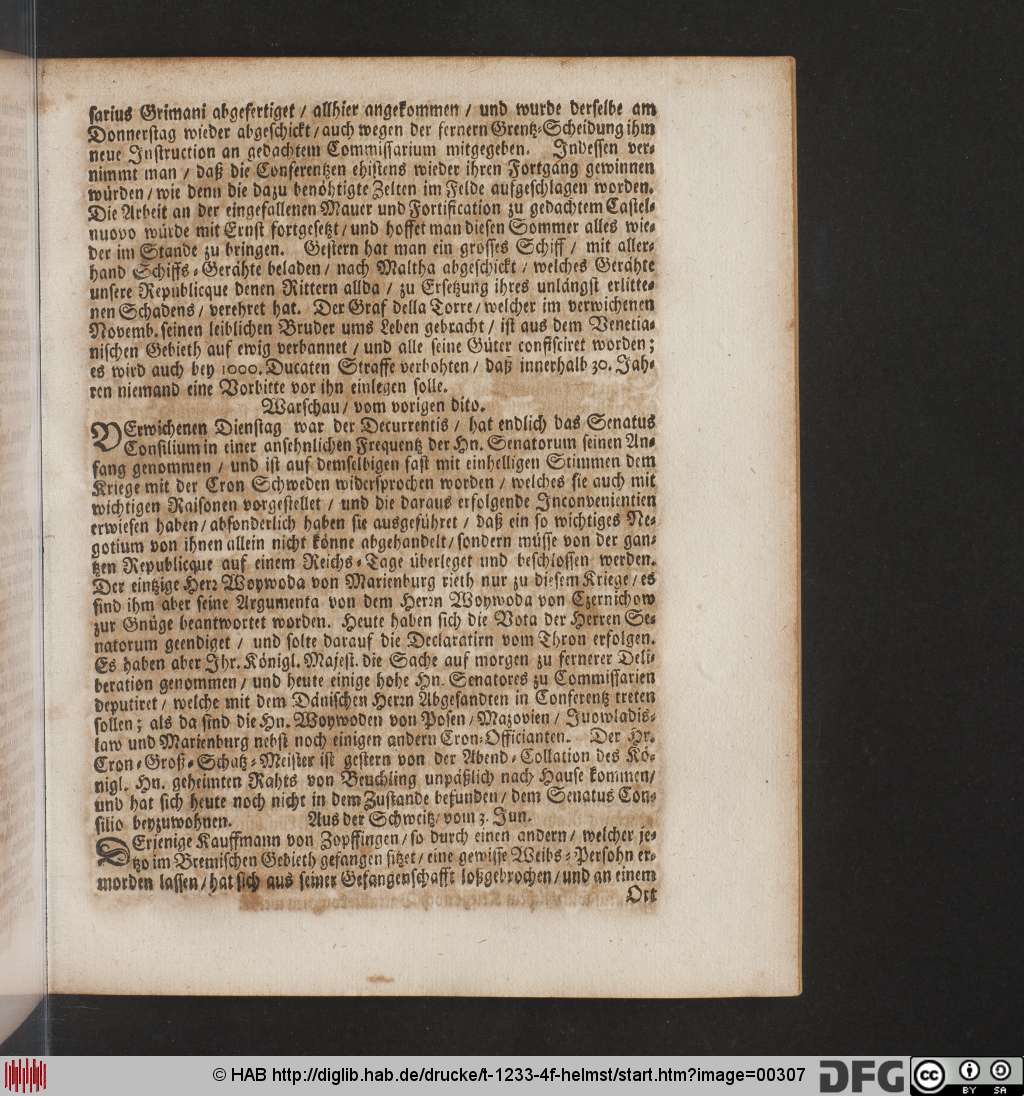 sarius Grimani abgefertiget / allhier angekommen / und wurde derselbe am
Donnerstag wieder abgeschickt / auch wegen der fernern Grentz-Scheidung ihm
neue Instruction an gedachtem Commissarium mitgegeben. Indessen ver-
nimmt man / daß die Conferentzen ehistens wieder ihren Fortgang gewinnen
würden / wie denn die dazu benöhtigte Zelten im Felde aufgeschlagen worden.
Die Arbeit an der eingefallenen Mauer und Fortification zu gedachtem Castel-
nuovo würde mit Ernst fortgesetzt / und hoffet man diesen Sommer alles wie-
der im Stande zu bringen. Gestern hat man ein grosses Schiff / mit aller-
hand Schiffs-Gerähte beladen / nach Maltha abgeschickt / welches Gerähte
unsere Republicque denen Rittern allda / zu Ersetzung ihres unlängst erlitte-
nen Schadens / verehret hat. Der Graf della Torre / welcher im verwichenen
Novemb. seinen leiblichen Bruder ums Leben gebracht / ist aus dem Venetia-
nischen Gebieth auf ewig verbannet / und alle seine Güter confisciret worden;
es wird auch bey 1000. Ducaten Straffe verbohten / daß innerhalb 30. Jah-
ren niemand eine Vorbitte vor ihn einlegen solle.
Warschau / vom vorigen dito.
VErwichenen Dienstag war der Decurrentis / hat endlich das Senatus
Consilium in einer ansehnlichen Frequentz der Hn. Senatorum seinen An-
fang genommen / und ist auf demselbigen fast mit einhelligen Stimmen dem
Kriege mit der Cron Schweden widersprochen worden / welches sie auch mit
wichtigen Raisonen vorgestellet / und die daraus erfolgende Inconvenientien
erwiesen haben / absonderlich haben sie ausgeführet / daß ein so wichtiges Ne-
gotium von ihnen allein nicht könne abgehandelt / sondern müsse von der gan-
tzen Republicque auf einem Reichs-Tage überleget und beschlossen werden.
Der eintzige Herr Woywoda von Marienburg rieth nur zu diesem Kriege / es
sind ihm aber seine Argumenta von dem Herrn Woywoda von Czernichow
zur Gnüge beantwortet worden. Heute haben sich die Vota der Herren Se-
natorum geendiget / und solte darauf die Declaratirn vom Thron erfolgen.
Es haben aber Ihr. Königl. Majest. die Sache auf morgen zu fernerer Deli-
beration genommen / und heute einige hohe Hn. Senatores zu Commissarien
deputiret / welche mit dem Dänischen Herrn Abgesandten in Conferentz treten
sollen; als da sind die Hn. Woywoden von Posen / Mazovien / Juowladis-
law und Marienburg nebst noch einigen andern Cron-Officianten. Der Hr.
Cron-Groß-Schatz-Meister ist gestern von der Abend-Collation des Kö-
nigl. Hn. geheimten Rahts von Beuchling unpäßlich nach Hause kommen /
und hat sich heute noch nicht in dem Zustande befunden / dem Senatus Con-
silio beyzuwohnen. Aus der Schweitz / vom 3. Jun.
DErjenige Kauffmann von Zopffingen / so durch einen andern / welcher je-
tzo im Bremischen Gebieth gefangen sitzet / eine gewisse Weibs-Persohn er-
morden lassen / hat sich aus seiner Gefangenschafft loßgebrochen / und an einem
Ort
© HAB http://diglib.hab.de/drucke/t-1233-4f-helmst/start.htm?image=00307
DFG
cc BY SA